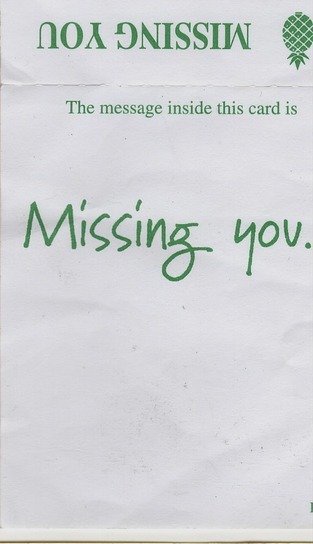 MISSING YOU
The message inside this card is
Missing you.